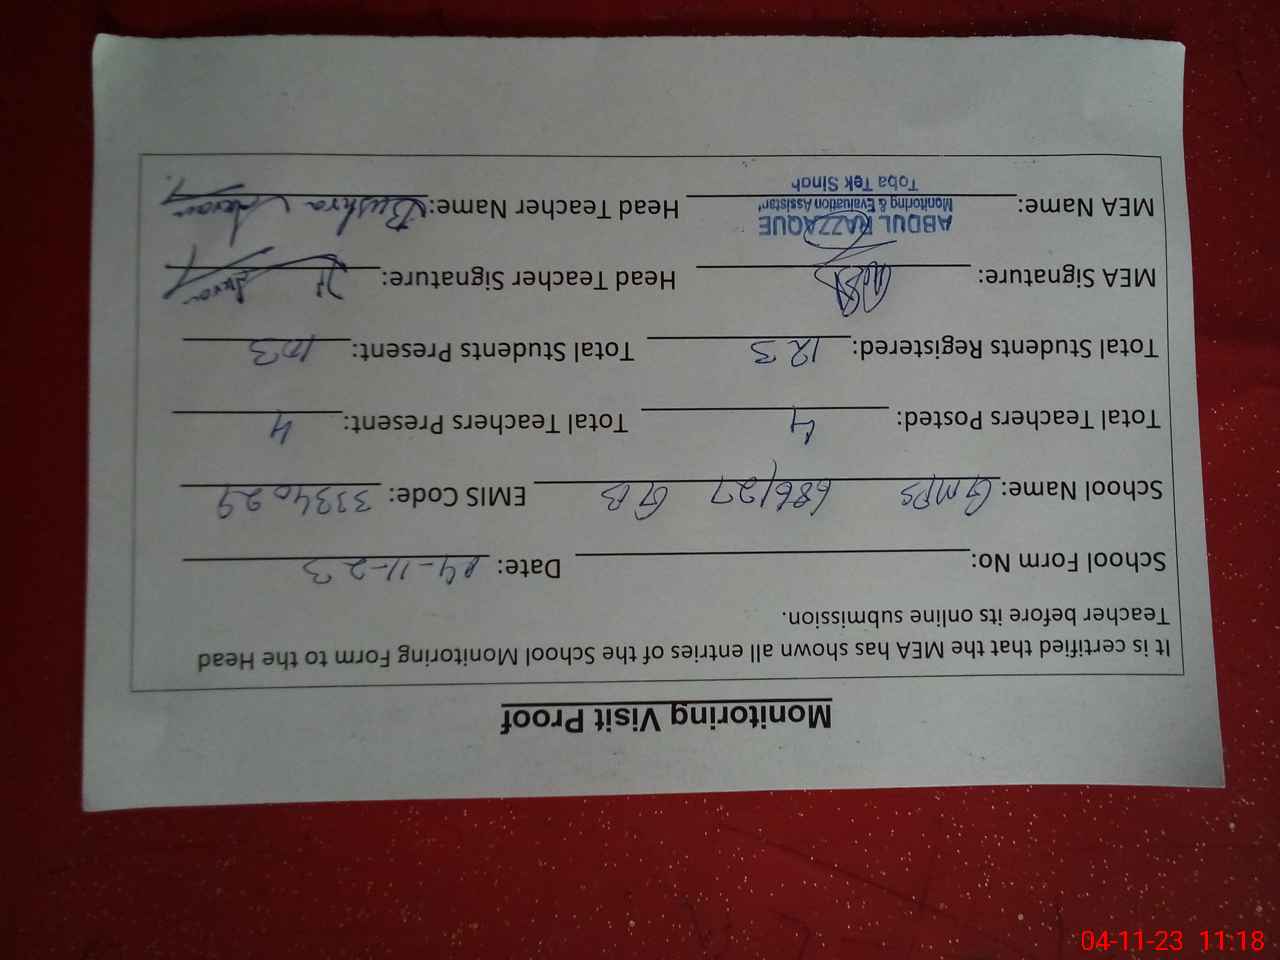 Monitoring Visit Proof
It is certified that the MEA has shown all entries of the School Monitoring Form to the Head
Teacher before its online submission.
School Form No: Date: 04-11-23
School Name: GMPS 686/27 GB EMIS Code: 3334029
Total Teachers Posted: 4 Total Teachers Present: 4
Total Students Registered: 123 Total Students Present: 103
MEA Signature: Head Teacher Signature:
ABDUL RAZZAQUE
MEA Name: Monitoring & Evaluation Assistant Head Teacher Name: Bushra
Toba Tek Singh
04-11-23 11:18